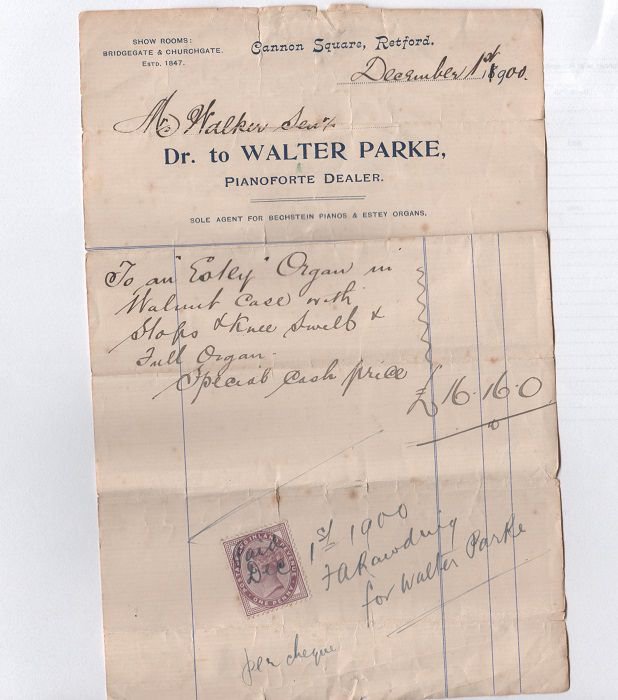 SHOW ROOMS:
BRIDGEGATE & CHURCHGATE.
ESTD. 1847.
Cannon Square, Retford.
December 1st, 1900.
Mr Walker Senr
Dr. to WALTER PARKE,
PIANOFORTE DEALER.
SOLE AGENT FOR BECHSTEIN PIANOS & ESTEY ORGANS.
To an "Estey" Organ in
Walnut Case with
Stops & Knee Swells &
Full Organ.
Special Cash price
£16.16.0
Paid
Dec 1st 1900
ONE PENNY
FARawding
for Walter Parke
per cheque